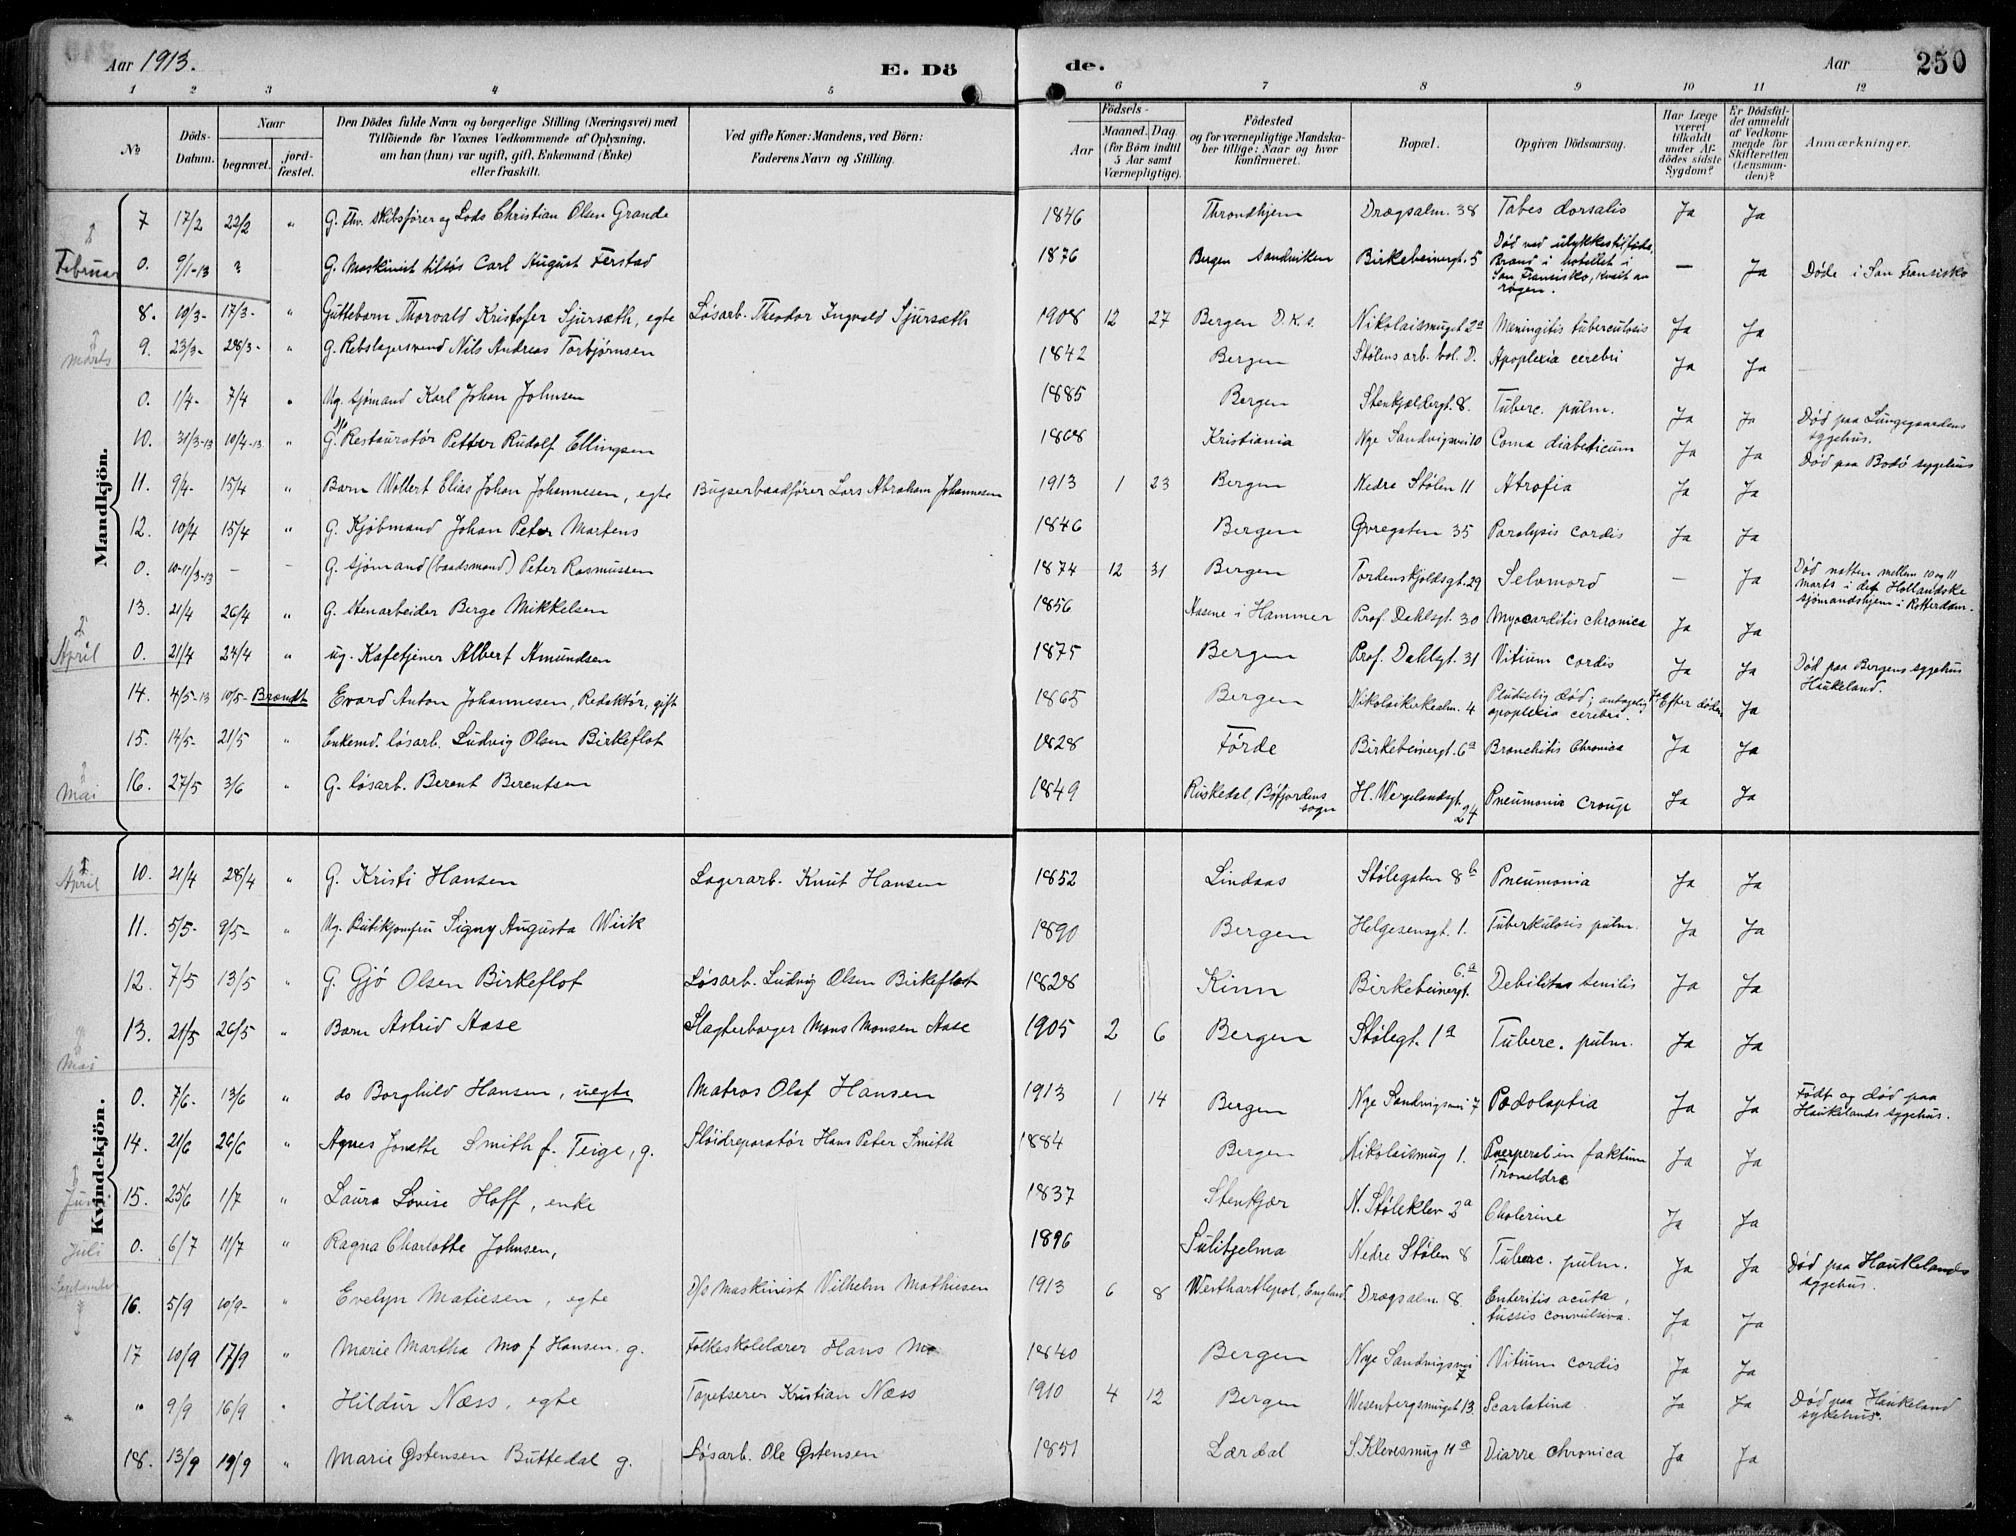 Aar 1913. E. Dö de. Aar 250
1 2 3 4 5 6 7 8 9 10 11 12
№ Döds-Datum. Naar begravet. jordfæstet. Den Dödes fulde Navn og borgerlige Stilling (Næringsvei) med Tilföiende for Voxnes Vedkommende af Oplysning, om han (hun) var ugift, gift, Enkemand (Enke) eller fraskilt. Ved gifte Koner: Mandens, ved Börn: Faderens Navn og Stilling. Aar Födsels- Maaned. Dag. (for Börn indtil 5 Aar samt Værnepligtige). Födested og for værnepligtige Mandskaber tillige: Naar og hvor konfirmeret. Bopæl. Opgiven Dödsaarsag. Har Læge været tilkaldt under Afdödes sidste Sygdom? Er Dödsfaldet anmeldt af Vedkommende for Skifteretten (Lensmanden)? Anmærkninger.
Mandkjön.
7 17/2 22/2 " G. Fhv. skibsfører og Lods Christian Olsen Grande 1846 Throndhjem Drægsalm. 38 Tabes dorsalis Ja Ja
Februar
0. 9/1-13 ? G. Maskinist tilsøs Carl August Ferstad 1876 Bergen Sandviken Birkebeinergt. 5 Død ved ulykkestilfælde, Brand i hotellet i San Fransisko, kvalt av røgen. — Ja Døde i San Fransisko
8. 10/3- 17/3- " Guttebarn Thorvald Kristofer Sjursæth, egte Løsarb. Theodor Ingvald Sjursæth 1908 12 27 Bergen D.K.s. Nikolaismuget 2a Meningitis tuberculosis Ja Ja
Marts
9. 23/3- 28/3- " G. Rebslagersvend Nils Andreas Torbjørnsen 1842 Bergen Stølens arb. bol. D. Apoplexia cerebri Ja Ja
0. 1/4- 7/4 " Ug. sjømand Karl Johan Johnsen 1885 Bergen Stenkjeldergt. 8. Tuberc. pulm. Ja Ja Død paa Lungegaardens sygehus.
10. 31/3-13 10/4-13 " G. Restauratør Petter Rudolf Ellingsen 1868 Kristiania Nye Sandvigsvei 10 Coma diabeticum Ja Ja Død paa Bodø sygehus
11. 9/4- 15/4 " Barn Wollert Elias Johan Johannesen, egte Bugserbaadfører Lars Abraham Johannesen 1913 1 23 Bergen Nedre Stølen 11 Atrofia Ja Ja
12. 10/4 15/4 " G. Kjøbmand Johan Peter Martens 1846 Bergen Øvregaten 35 Paralysis cordis Ja Ja
0. 10-11/3-13 — — G. sjømand (baadsmand) Peter Rasmussen 1874 12 31 Bergen Tordenskjoldsgt. 29 Selvmord — Ja Død natten mellem 10 og 11 marts i det Hollandske sjømandshjem i Rotterdam.
13. 21/4 26/4 " G. Stenarbeider Berge Mikkelsen 1856 Aasene i Hammer Prof. Dahlsgt. 30 Myocarditis chronica Ja Ja
April
0. 21/4 24/4 " ug. Kafetjener Albert Amundsen 1875 Bergen Prof. Dahlsgt. 31 Vitium cordis Ja Ja Død paa Bergens sygehus Haukeland.
14. 4/5-13 10/5- Brændt Evard Anton Johannesen, Redaktør, gift 1865 Bergen Nikolaikirkealm. 4 Pludselig død; antagelig apoplexia cerebri. Efter døden Ja
15. 14/5- 21/5 " Enkemd. løsarb. Ludvig Olsen Birkeflot 1828 Førde Birkebeinergt. 6a Bronchitis Chronica Ja Ja
Mai
16. 27/5 3/6 " G. løsarb. Berent Berentsen 1849 Riskedal, Bøfjordens sogn H. Wergelandsgt. 24 Pneumonia croup Ja Ja
Kvindekjön.
April
10. 21/4 28/4 " G. Kristi Hansen Lagerarb. Knut Hansen 1852 Lindaas Stølegaten 8b Pneumonia Ja Ja
11. 5/5- 9/5- " Ug. Butikjomfru Signy Augusta Wiik 1890 Bergen Helgesensgt. 1. Tuberkulosis pulm. Ja Ja
12. 7/5 13/5 " G. Gjø Olsen Birkeflot Løsarb. Ludvig Olsen Birkeflot 1828 Kinn Birkebeinergt. 6.a Debilitas senilis Ja Ja
13. 21/5 26/5 " Barn Astrid Aase Slagterborger Mons Monsen Aase 1905 2 6 Bergen Stølegt. 1a Tuberc. pulm. Ja Ja
Mai
0. 7/6- 13/6 " do Borghild Hansen, uegte Matros Olaf Hansen 1913 1 14 Bergen Nye Sandvigsvei 7 Ja Ja Født og død paa Haukelands sygehus.
14. 21/6 26/6 " Agnes Jonette Smith f. Teige, g. Sløidreparatør Hans Peter Smith 1884 Bergen Nikolaismug 1. Ja Ja
Juni
15. 25/6 1/7 " Laura Lovise Hoff, enke 1837 Stenkjær N. Støleklev 2a Cholerine Ja Ja
Juli
0. 6/7 11/7 " Ragna Charlotte Johnsen, 1896 Sulitjelma Nedre Stølen 8 Tuberc. pulm. Ja Ja Død paa Haukelands sygehus.
September
16. 5/9 10/9- " Evelyn Matiesen, egte D/s Maskinist Vilhelm Mathiesen 1913 6 8 Westhartlepol, England Drægsalm. 8 Enteritis acuta, tussis convulsiva. Ja Ja
17 10/9 17/9 " Marie Martha Mo f Hansen, g. Folkeskolelærer Hans Mo 1840 Bergen Nye Sandvigsvei 7 Vitium cordis Ja Ja
" 9/9 16/9 " Hildur Næss, egte Tapetserer Kristian Næss 1910 4 12 Bergen Wesenbergsmuget 13. Scarlatina Ja Ja Død paa Haukeland sykehus.
18. 13/9 19/9 " Marie Østensen Buttedal g. Løsarb. Ole Østensen 1851 Lærdal S. Klevesmug 11a Diarre chronica Ja Ja